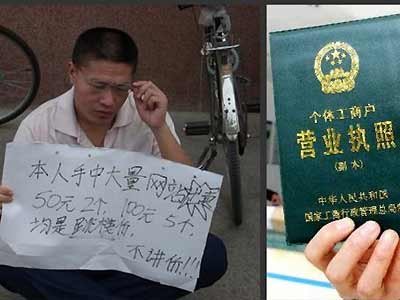 本人手中大量网站
50元2个 100元5个
均是跳楼价
不讲价!!!
个体工商户
营业执照
(副本)
中华人民共和国
国家工商行政管理总局制